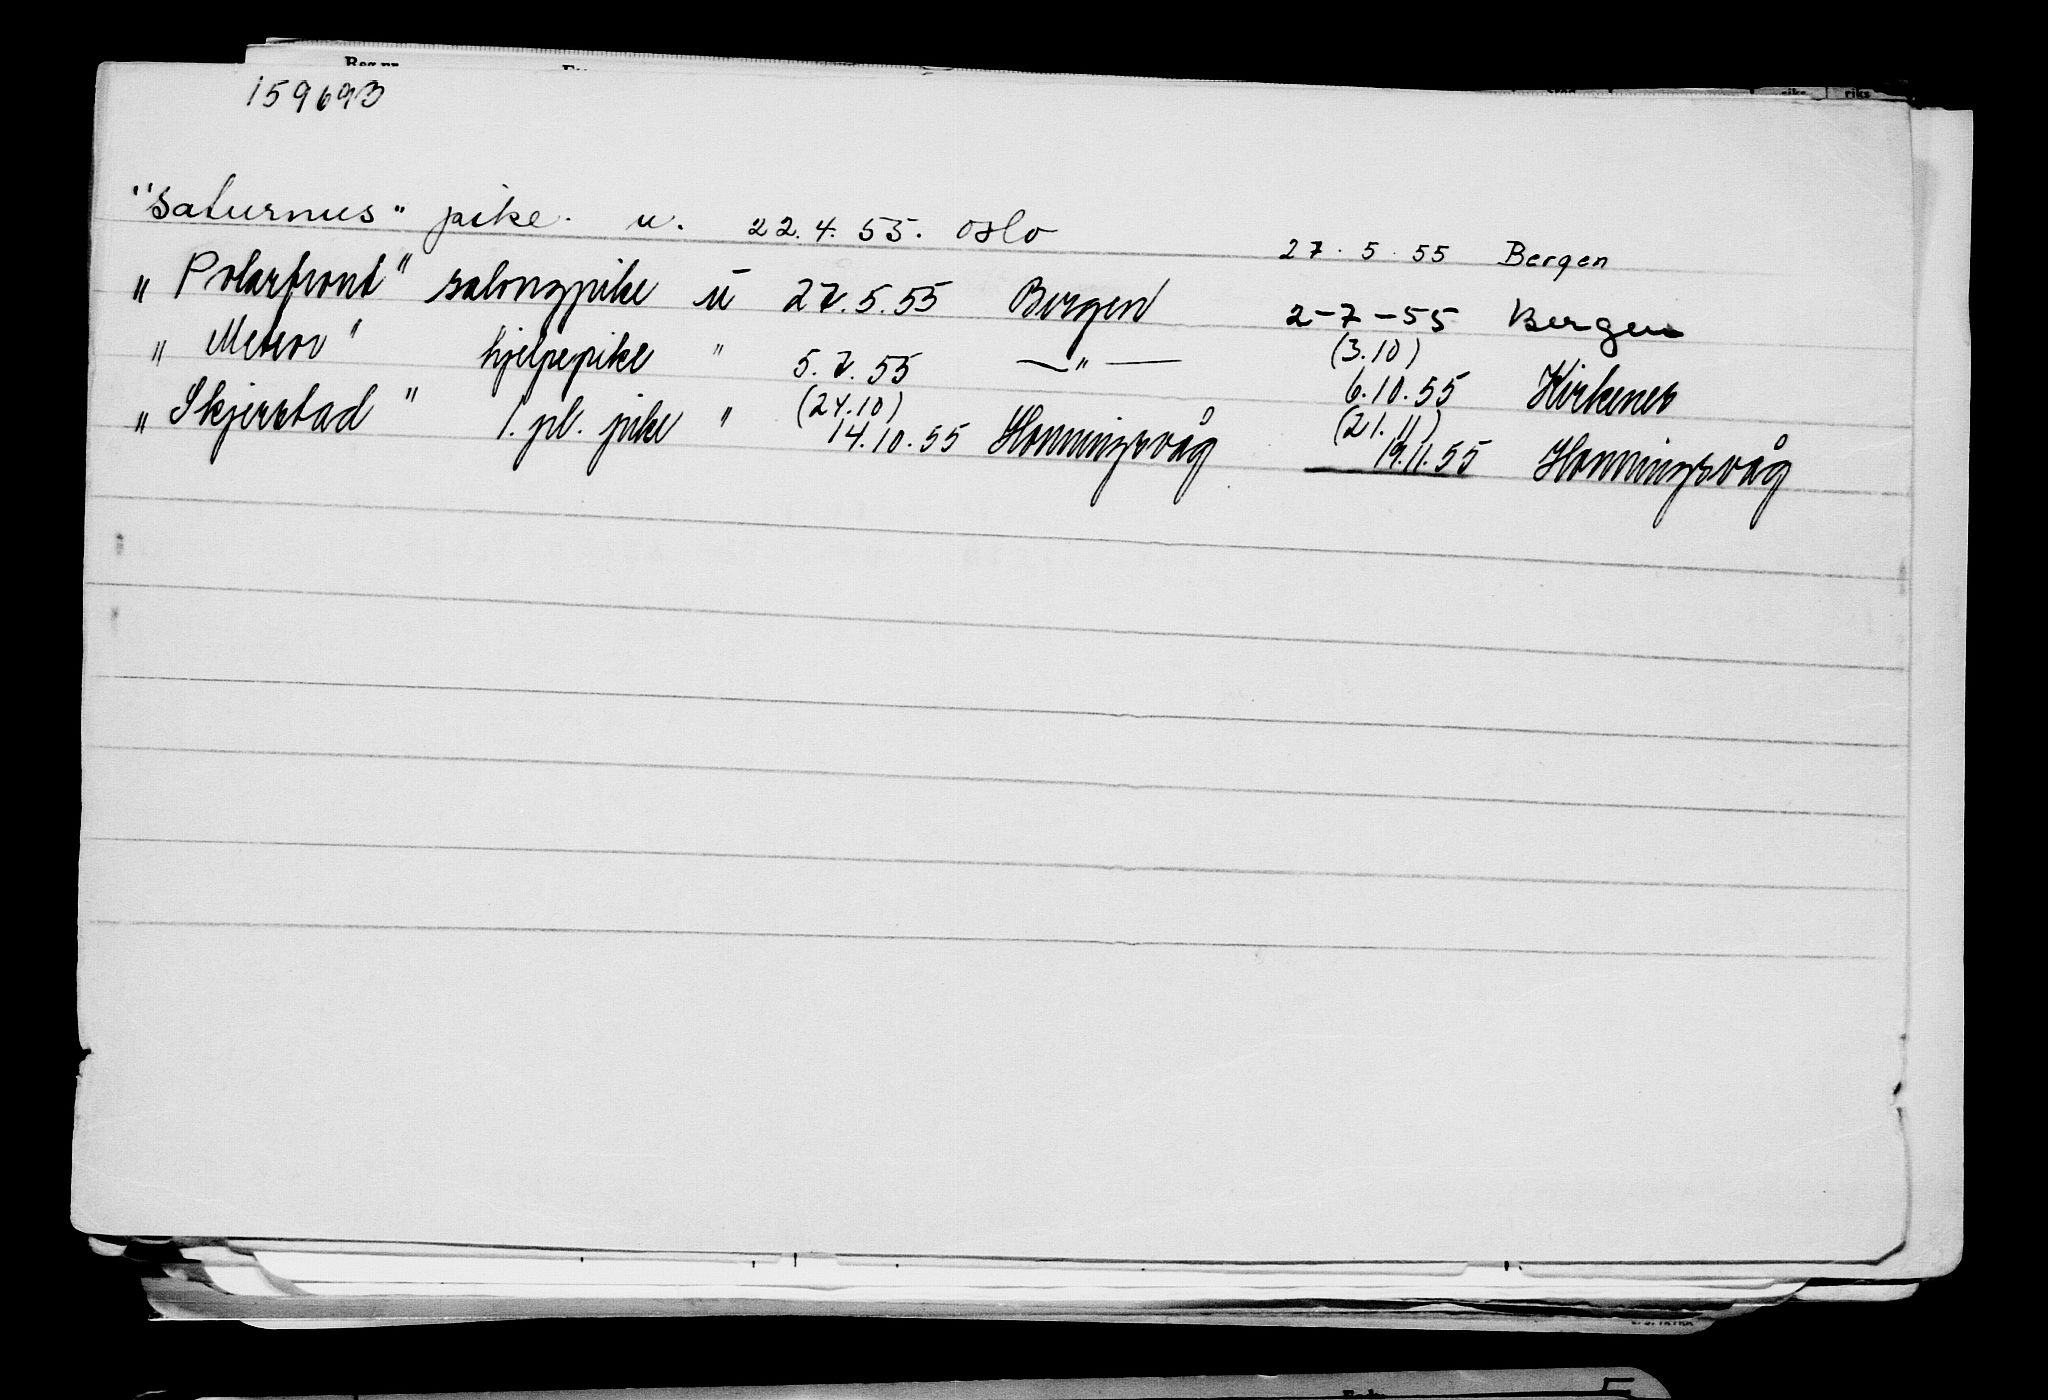 159693
"Saturnus" pike. u. 22.4.55. Oslo 27.5.55 Bergen
" Polarfront" salongpike u 27.5.55 Bergen 2-7-55 Bergen
" Meteor " hjelpepike " 5.7.55 —"— (3.10) 6.10.55 Kirkenes
" Skjerstad " 1. pl. pike " (24.10) 14.10.55 Honningsvåg (21.11) 19.11.55 Honningsvåg